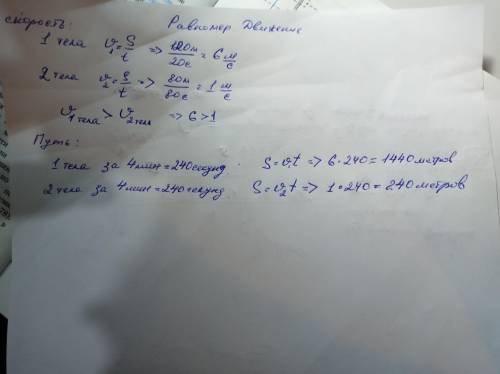 скорость: Равномер Движение
1 тела υ₁=S/t => 120м/20с = 6 м/с
2 тела υ₂=S/t => 80м/80с = 1 м/с
υ₁ тела > υ₂ тела => 6 > 1
Путь:
1 тела за 4 мин = 240 секунд. S=υ₁t => 6·240 = 1440 метров
2 тела за 4 мин = 240 секунд S=υ₂t => 1·240 = 240 метров